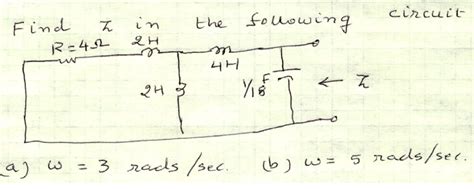 Find Z in the following circuit
R=4Ω 2H
4H
2H
1/18 F
← Z
(a) ω = 3 rads/sec. (b) ω = 5 rads/sec.